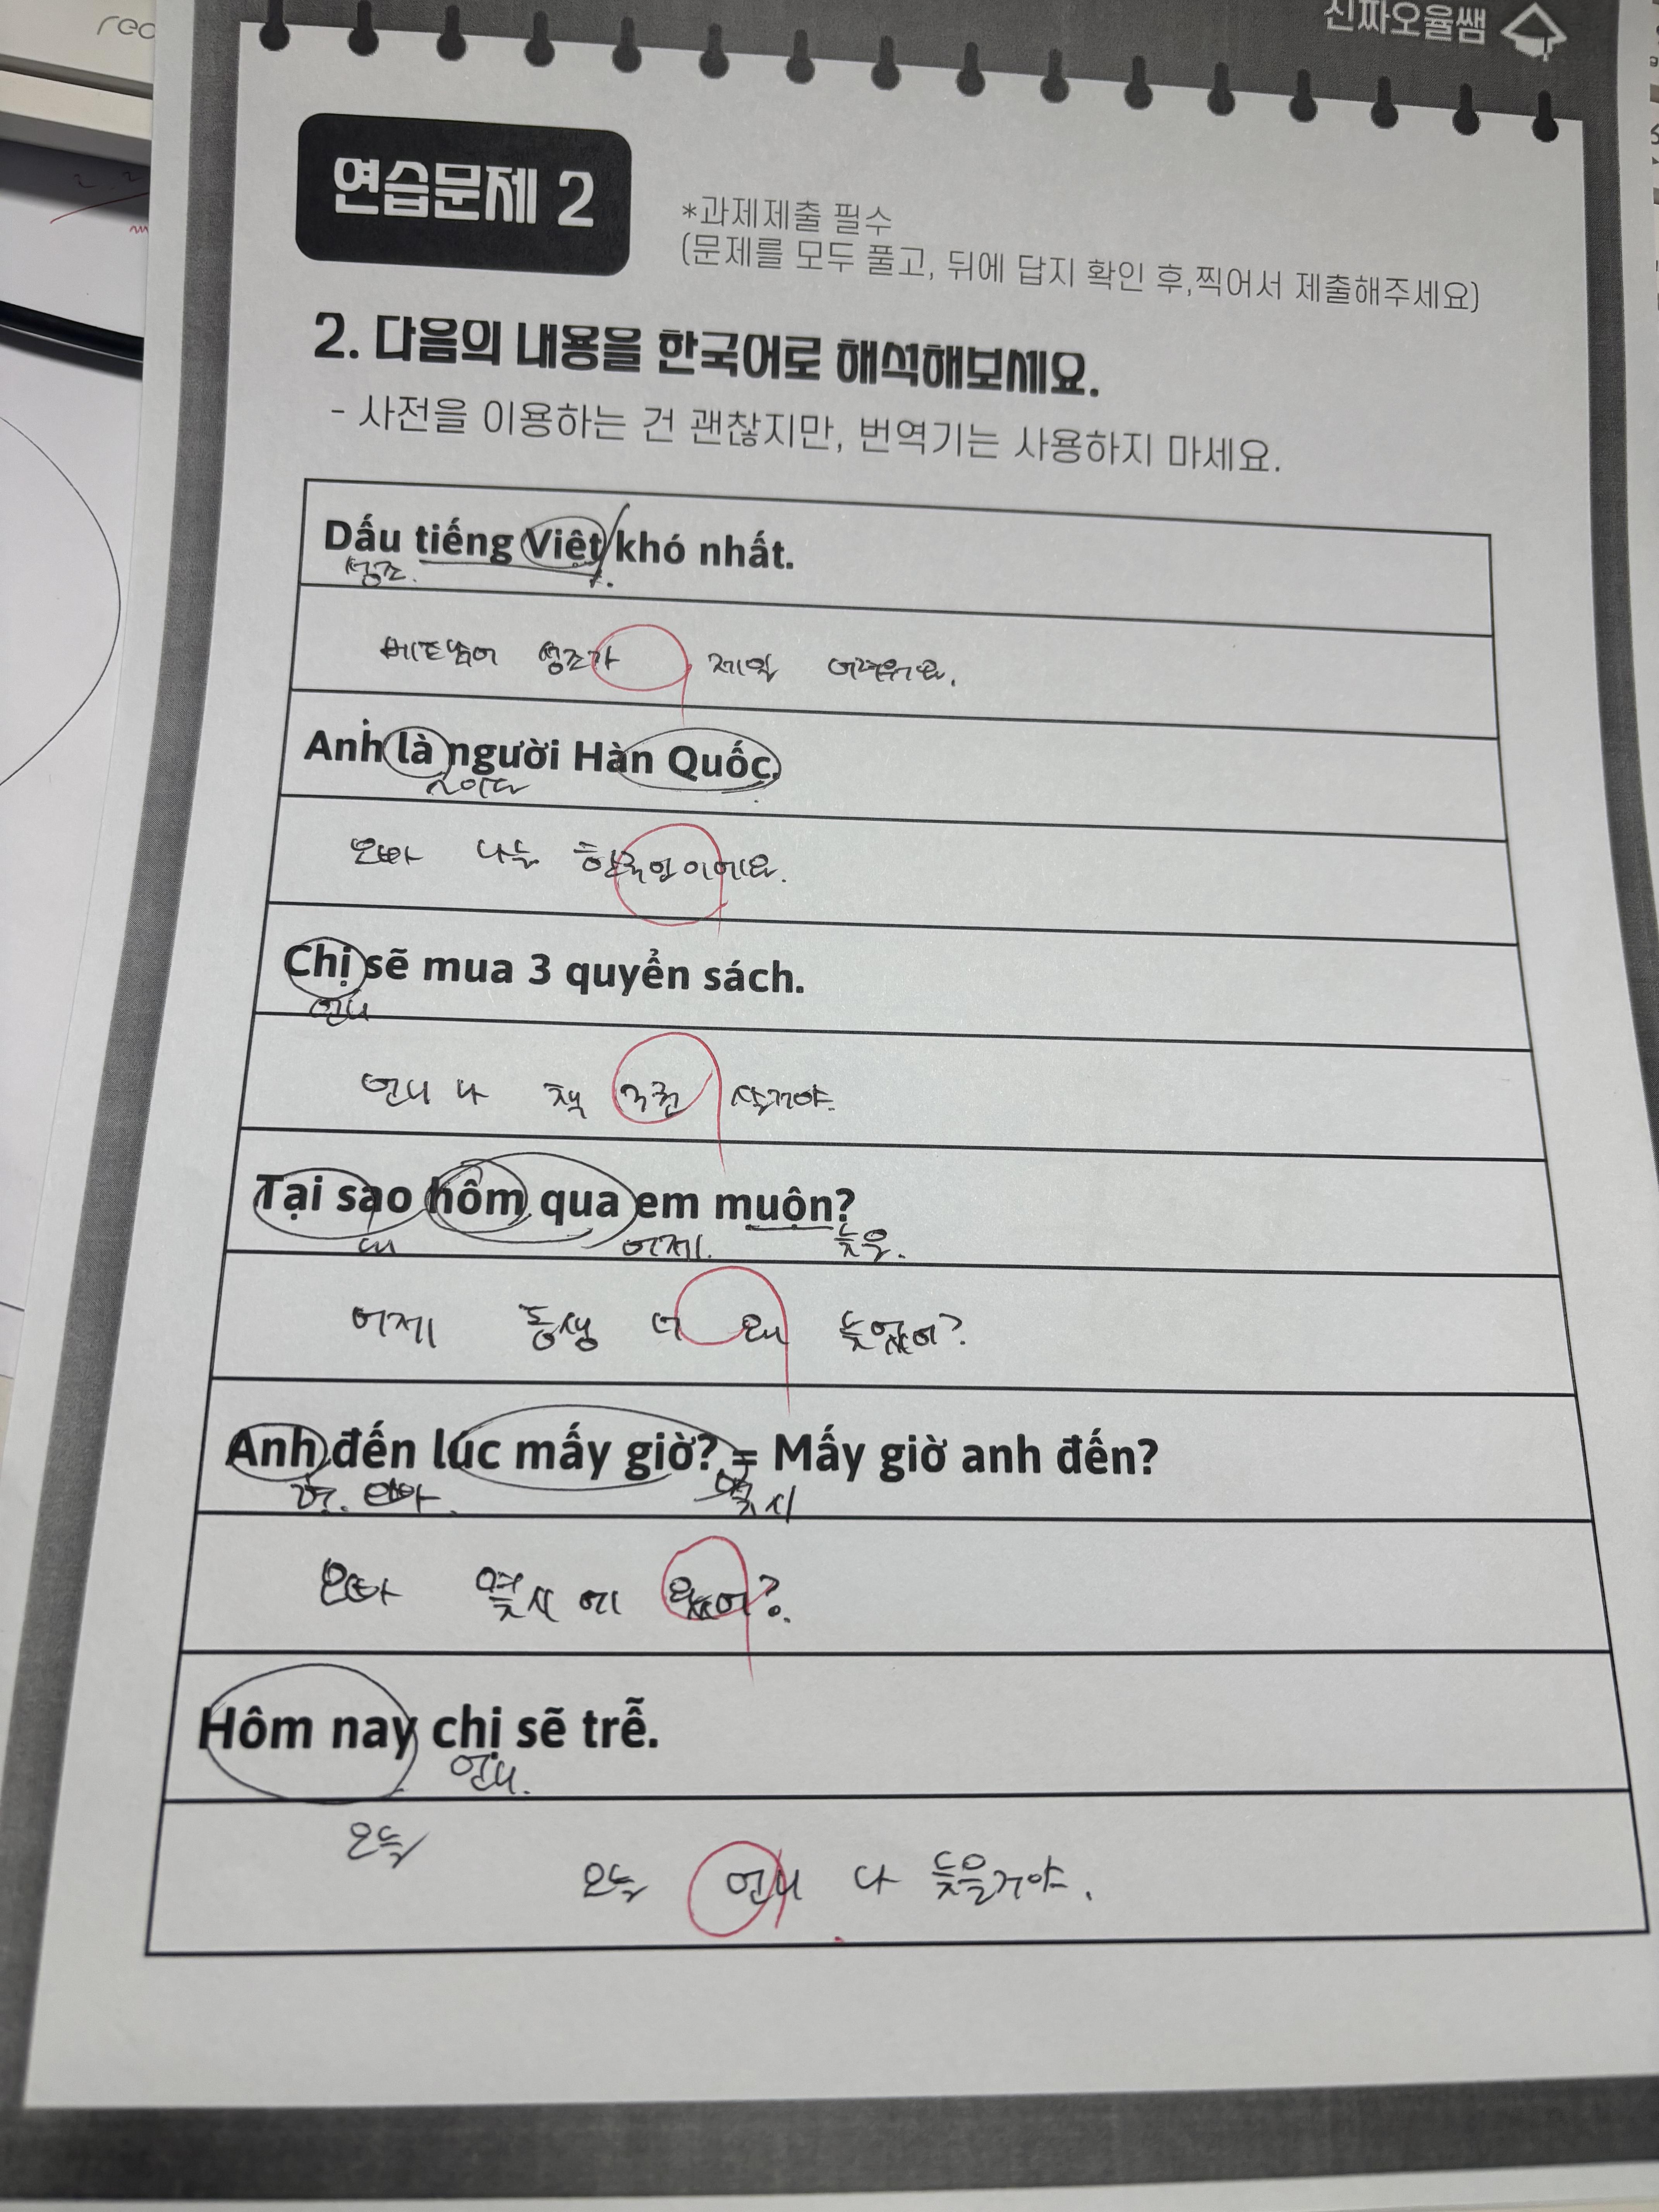 진짜오율쌤
연습문제 2
*과제제출 필수
(문제를 모두 풀고, 뒤에 답지 확인 후,찍어서 제출해주세요)
2. 다음의 내용을 한국어로 해석해보세요.
- 사전을 이용하는 건 괜찮지만, 번역기는 사용하지 마세요.
Dấu tiếng Việt khó nhất.
성조.
베트남어 성조가 제일 어려워요.
Anh là người Hàn Quốc.
~이다
오빠 나는 한국인이에요.
Chị sẽ mua 3 quyển sách.
언니
언니 나 책 3권 살거야.
Tại sao hôm qua em muộn?
왜 어제. 늦은.
어제 동생 너 왜 늦었어?
Anh đến lúc mấy giờ? = Mấy giờ anh đến?
형. 오빠. 몇시
오빠 몇시에 왔어?.
Hôm nay chị sẽ trễ.
언니.
오늘
오늘 언니 나 늦을거야.